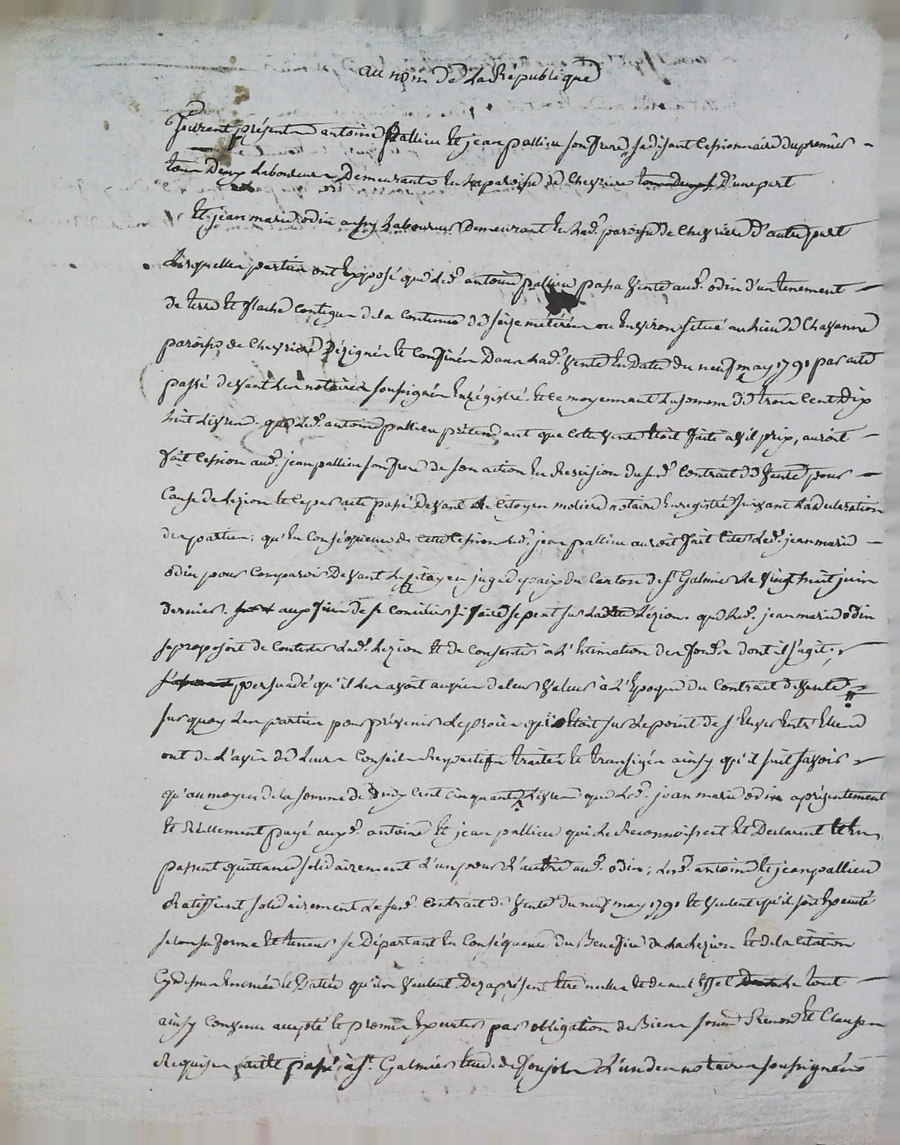 au nom de La République
furent présents antoine pallieu et jean pallieu son frere, se disant Cessionnaire du premier
tous deux Laboureurs Demeurants en La paroisse de Chevriere tous deux d'une part
Et jean marie odin aussy Laboureur Demeurant en lad. paroisse de Chevriere d'autre part
Lesquelles parties ont Exposé que led. antoine pallieu passa Vente aud. odin d'un tenement
de terre et contigus de la Contenue de seize metérées ou Environ situé au Lieu de Chavanne
paroisse de Chevriere Désignée et Confinée Dans lad. Vente En Date du neuf may 1791 par acte
passé devant Les notaires soussignés Enrégistré. Et ce moyennant La somme de trois Cent Dix
huit Livres. que led. antoine pallieu prétendant que cette Vente étoit faite à vil prix, auroit
fait Cession aud. jean pallieu son frere de son action En Rescision dud. Contrat de Vente pour
Cause de Lézion et ce par acte passé Devant le Citoyen notaire Enregistré suivant La declaration
des parties; qu'En Conséquence de cette Cession led. jean pallieu auroit fait Citer led. jean marie
odin pour Comparoir Devant Le Citoyen juge de paix du Canton de St Galmier Le Vingt huit juin
dernier. aux fins de se Concilier sur lad. Lézion. que led. jean marie odin
se proposoit de Contester lad. Lezion et de Consentir à L'Estimation des fonds dont il s'agit,
persuadé qu'il Les avoit acquis de leur Valeur à L'Epoque du Contrat de Vente
sur quoy Les parties pour prévenir Le procès qui étoit sur Le point de s'Elever Entr'Elles
ont de L'avis de Leurs Conseils Respectifs traité et transigé ainsy qu'il suit savoir
qu'au moyen de la somme de Cent Cinquante Livres que led. jean marie odin a présentement
et Réellement payé auxd. antoine et jean pallieu qui Le Reconnoissent et Declarent et En
passent quittance solidairement L'un pour L'autre aud. odin; Led. antoine et jean pallieu
Ratiffient solidairement Le susd. Contrat de Vente du neuf may 1791 Et Veulent qu'il soit Exécuté
selon sa forme et teneur se Départant En Conséquence du Benefice de La Lezion et de la Citation
Cy dessus Enoncée et Datée qu'ils Veulent Dez aprésent Etre nulle et de nul Effet tout
ainsy Convenu accepté et promis Executer par obligation de Biens Renond. et Clauses
Requises fait et passé à St Galmier Etude de L'un des notaires soussignés